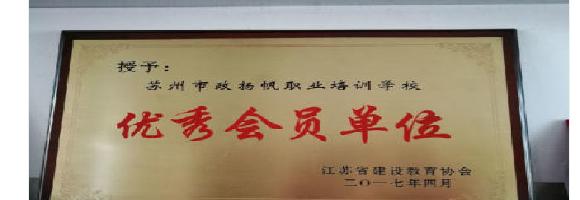 授予：
苏州市政扬帆职业培训学校
优秀会员单位
江苏省建设教育协会
二〇一七年四月